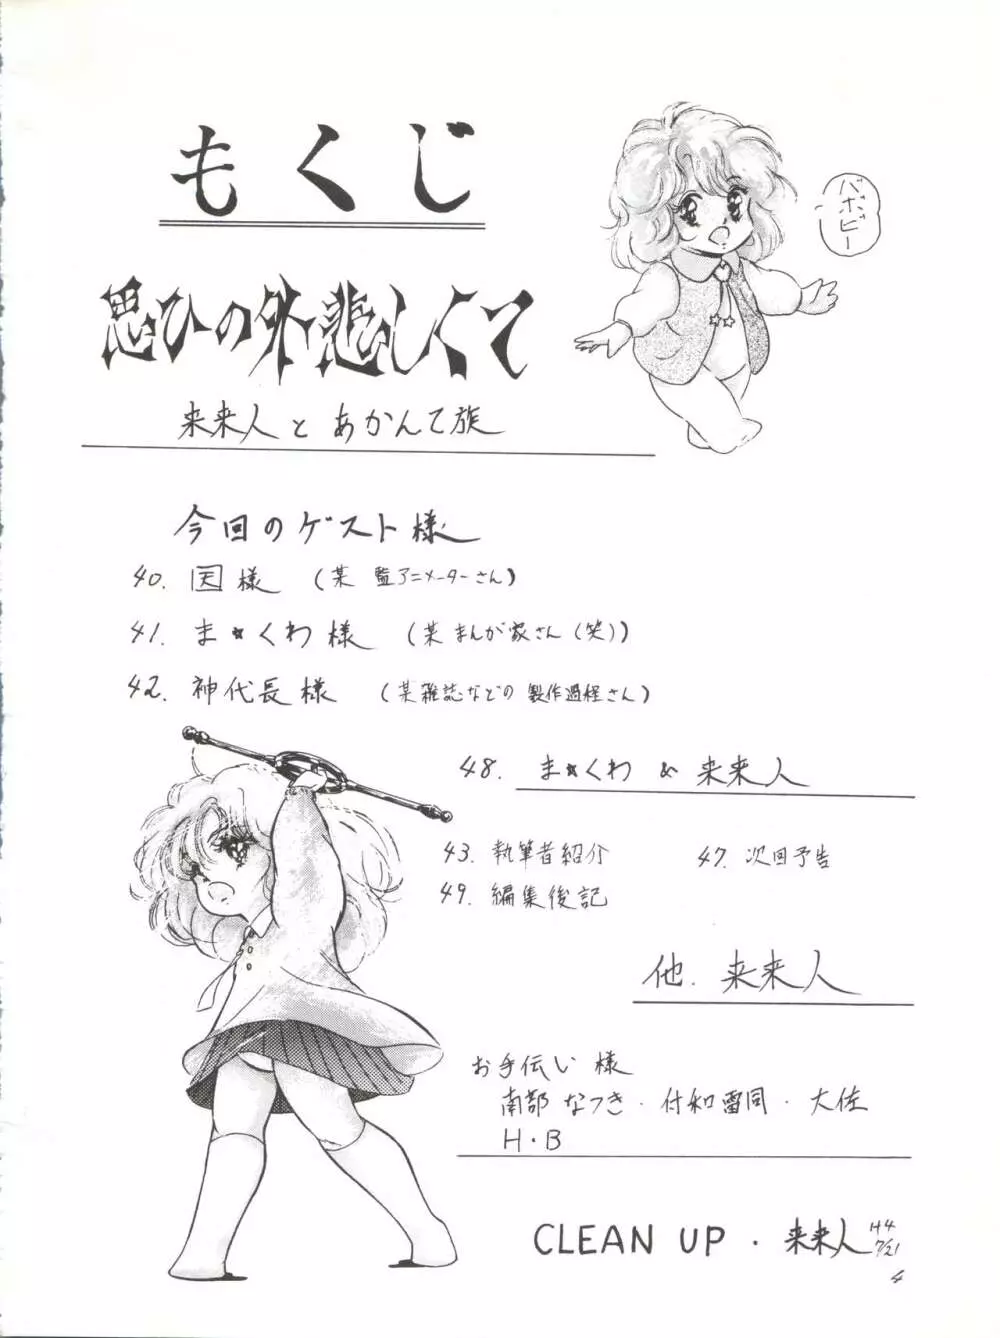 もくじ
バホビー
思ひの外悲しくて
来来人と あかんて族
今回のゲスト様
40. 因様 (某 監アニメーターさん)
41. ま★くわ様 (某 まんが家さん(笑))
42. 神代長様 (某雑誌などの 製作過程さん)
48. ま★くわ & 来来人
43. 執筆者紹介 47. 次回予告
49. 編集後記
他. 来来人
お手伝い様
南部なつき・付和雷同・大佐
H・B
CLEAN UP・来来人 H4 7/21
4